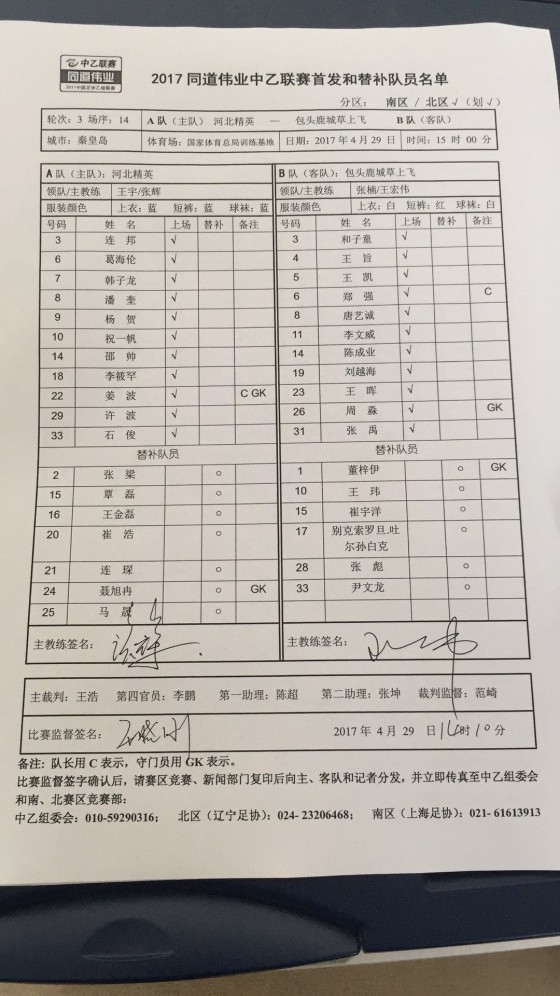 中乙联赛
同道伟业
2017中国足协乙级联赛
2017 同道伟业中乙联赛首发和替补队员名单
分区： 南区 / 北区√（划√）
轮次：3 场序：14 A 队（主队） 河北精英 — 包头鹿城草上飞 B 队（客队）
城市：秦皇岛 体育场：国家体育总局训练基地 日期：2017 年 4 月 29 日 时间：15 时 00 分
A 队（主队）：河北精英
领队/主教练 王宇/张辉
服装颜色 上衣：蓝 短裤：蓝 球袜：蓝
号码 姓 名 上场 替补 备注
3 连 邦 √
6 葛海伦 √
7 韩子龙 √
8 潘 奎 √
9 杨 贺 √
10 祝一帆 √
14 邵 帅 √
18 李筱罕 √
22 姜 波 √ C GK
29 许 波 √
33 石 俊 √
替补队员
2 张 梁 ○
15 覃 磊 ○
16 王金磊 ○
20 崔 浩 ○
21 连 琛 ○
24 聂旭冉 ○ GK
25 马 晟 ○
主教练签名：
B 队（客队）：包头鹿城草上飞
领队/主教练 张楠/王宏伟
服装颜色 上衣：白 短裤：红 球袜：白
号码 姓 名 上场 替补 备注
3 和子童 √
4 王 旨 √
5 王 凯 √
6 郑 强 √ C
8 唐艺诚 √
11 李文威 √
14 陈成业 √
19 刘越海 √
23 王 晖 √
26 周 淼 √ GK
31 张 禹 √
替补队员
1 董梓伊 ○ GK
10 王 玮 ○
15 崔宇洋 ○
17 别克索罗旦.吐
尔孙白克 ○
28 张 彪 ○
33 尹文龙 ○
主教练签名：
主裁判：王浩 第四官员：李鹏 第一助理：陈超 第二助理：张坤 裁判监督：范崎
比赛监督签名： 2017 年 4 月 29 日 14 时 10 分
备注：队长用 C 表示，守门员用 GK 表示。
比赛监督签字确认后，请赛区竞赛、新闻部门复印后向主、客队和记者分发，并立即传真至中乙组委会
和南、北赛区竞赛部：
中乙组委会：010-59290316； 北区（辽宁足协）：024- 23206468； 南区（上海足协）：021- 61613913